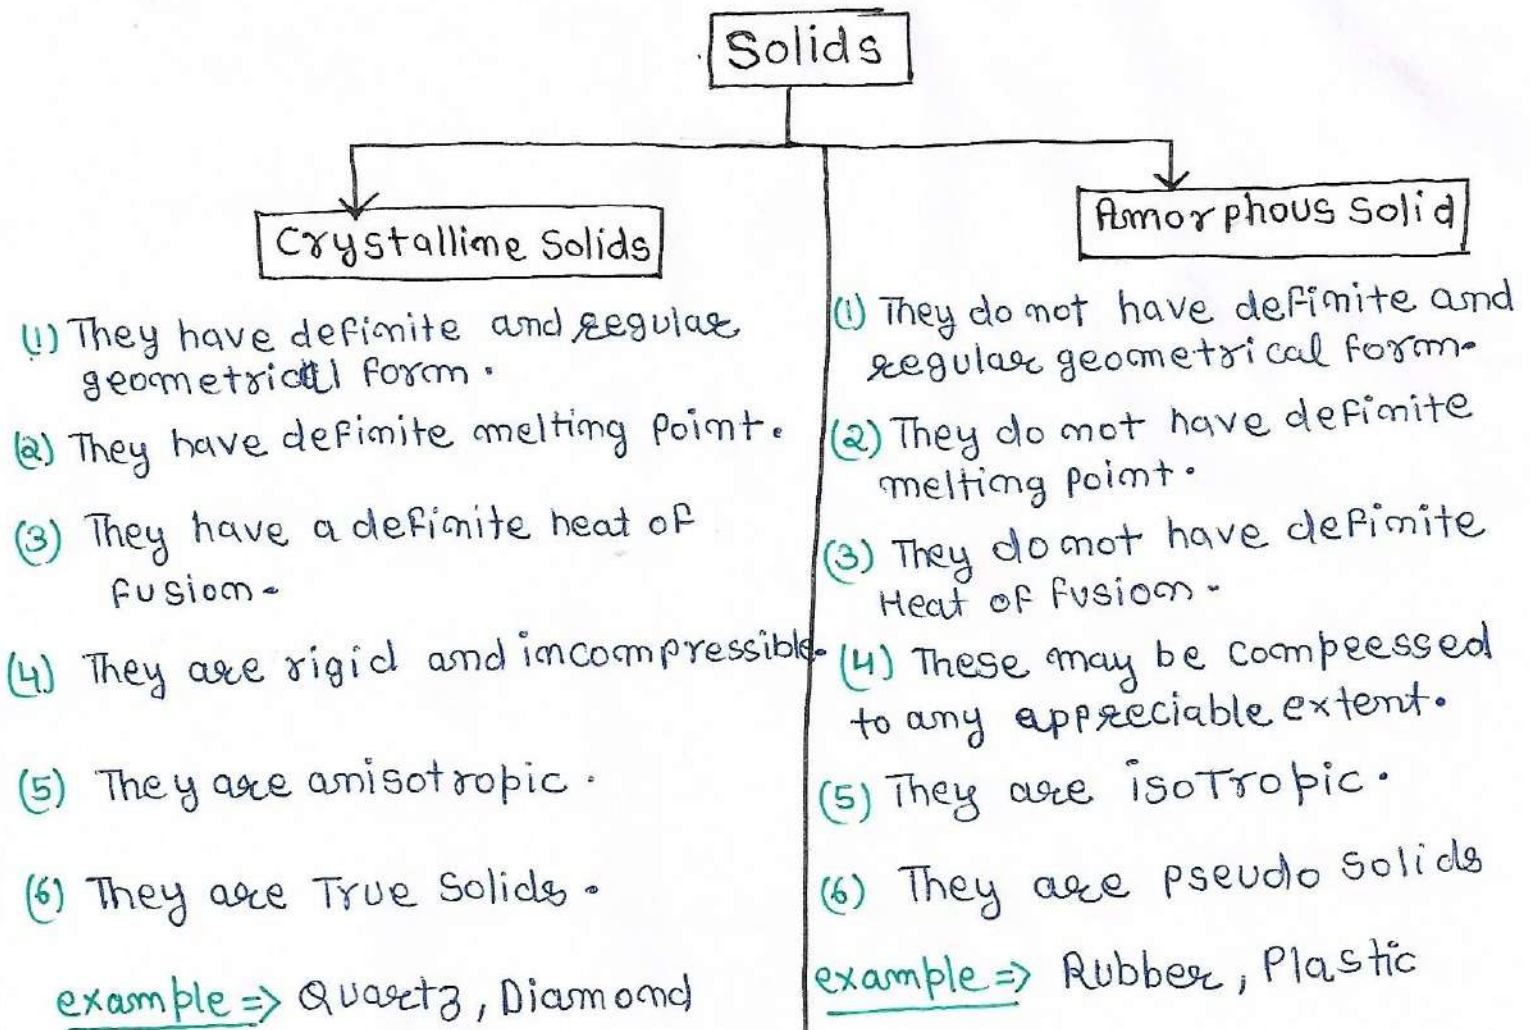 Solids
Crystalline Solids
(1) They have definite and regular
geometrical form.
(2) They have definite melting Point.
(3) They have a definite heat of
fusion.
(4) They are rigid and incompressible.
(5) They are anisotropic.
(6) They are True Solids.
example => Quartz, Diamond
Amorphous Solid
(1) They do not have definite and
regular geometrical form.
(2) They do not have definite
melting Point.
(3) They do not have definite
Heat of fusion.
(4) These may be compeessed
to any appreciable extent.
(5) They are isoTropic.
(6) They are Pseudo Solids
example => Rubber, Plastic